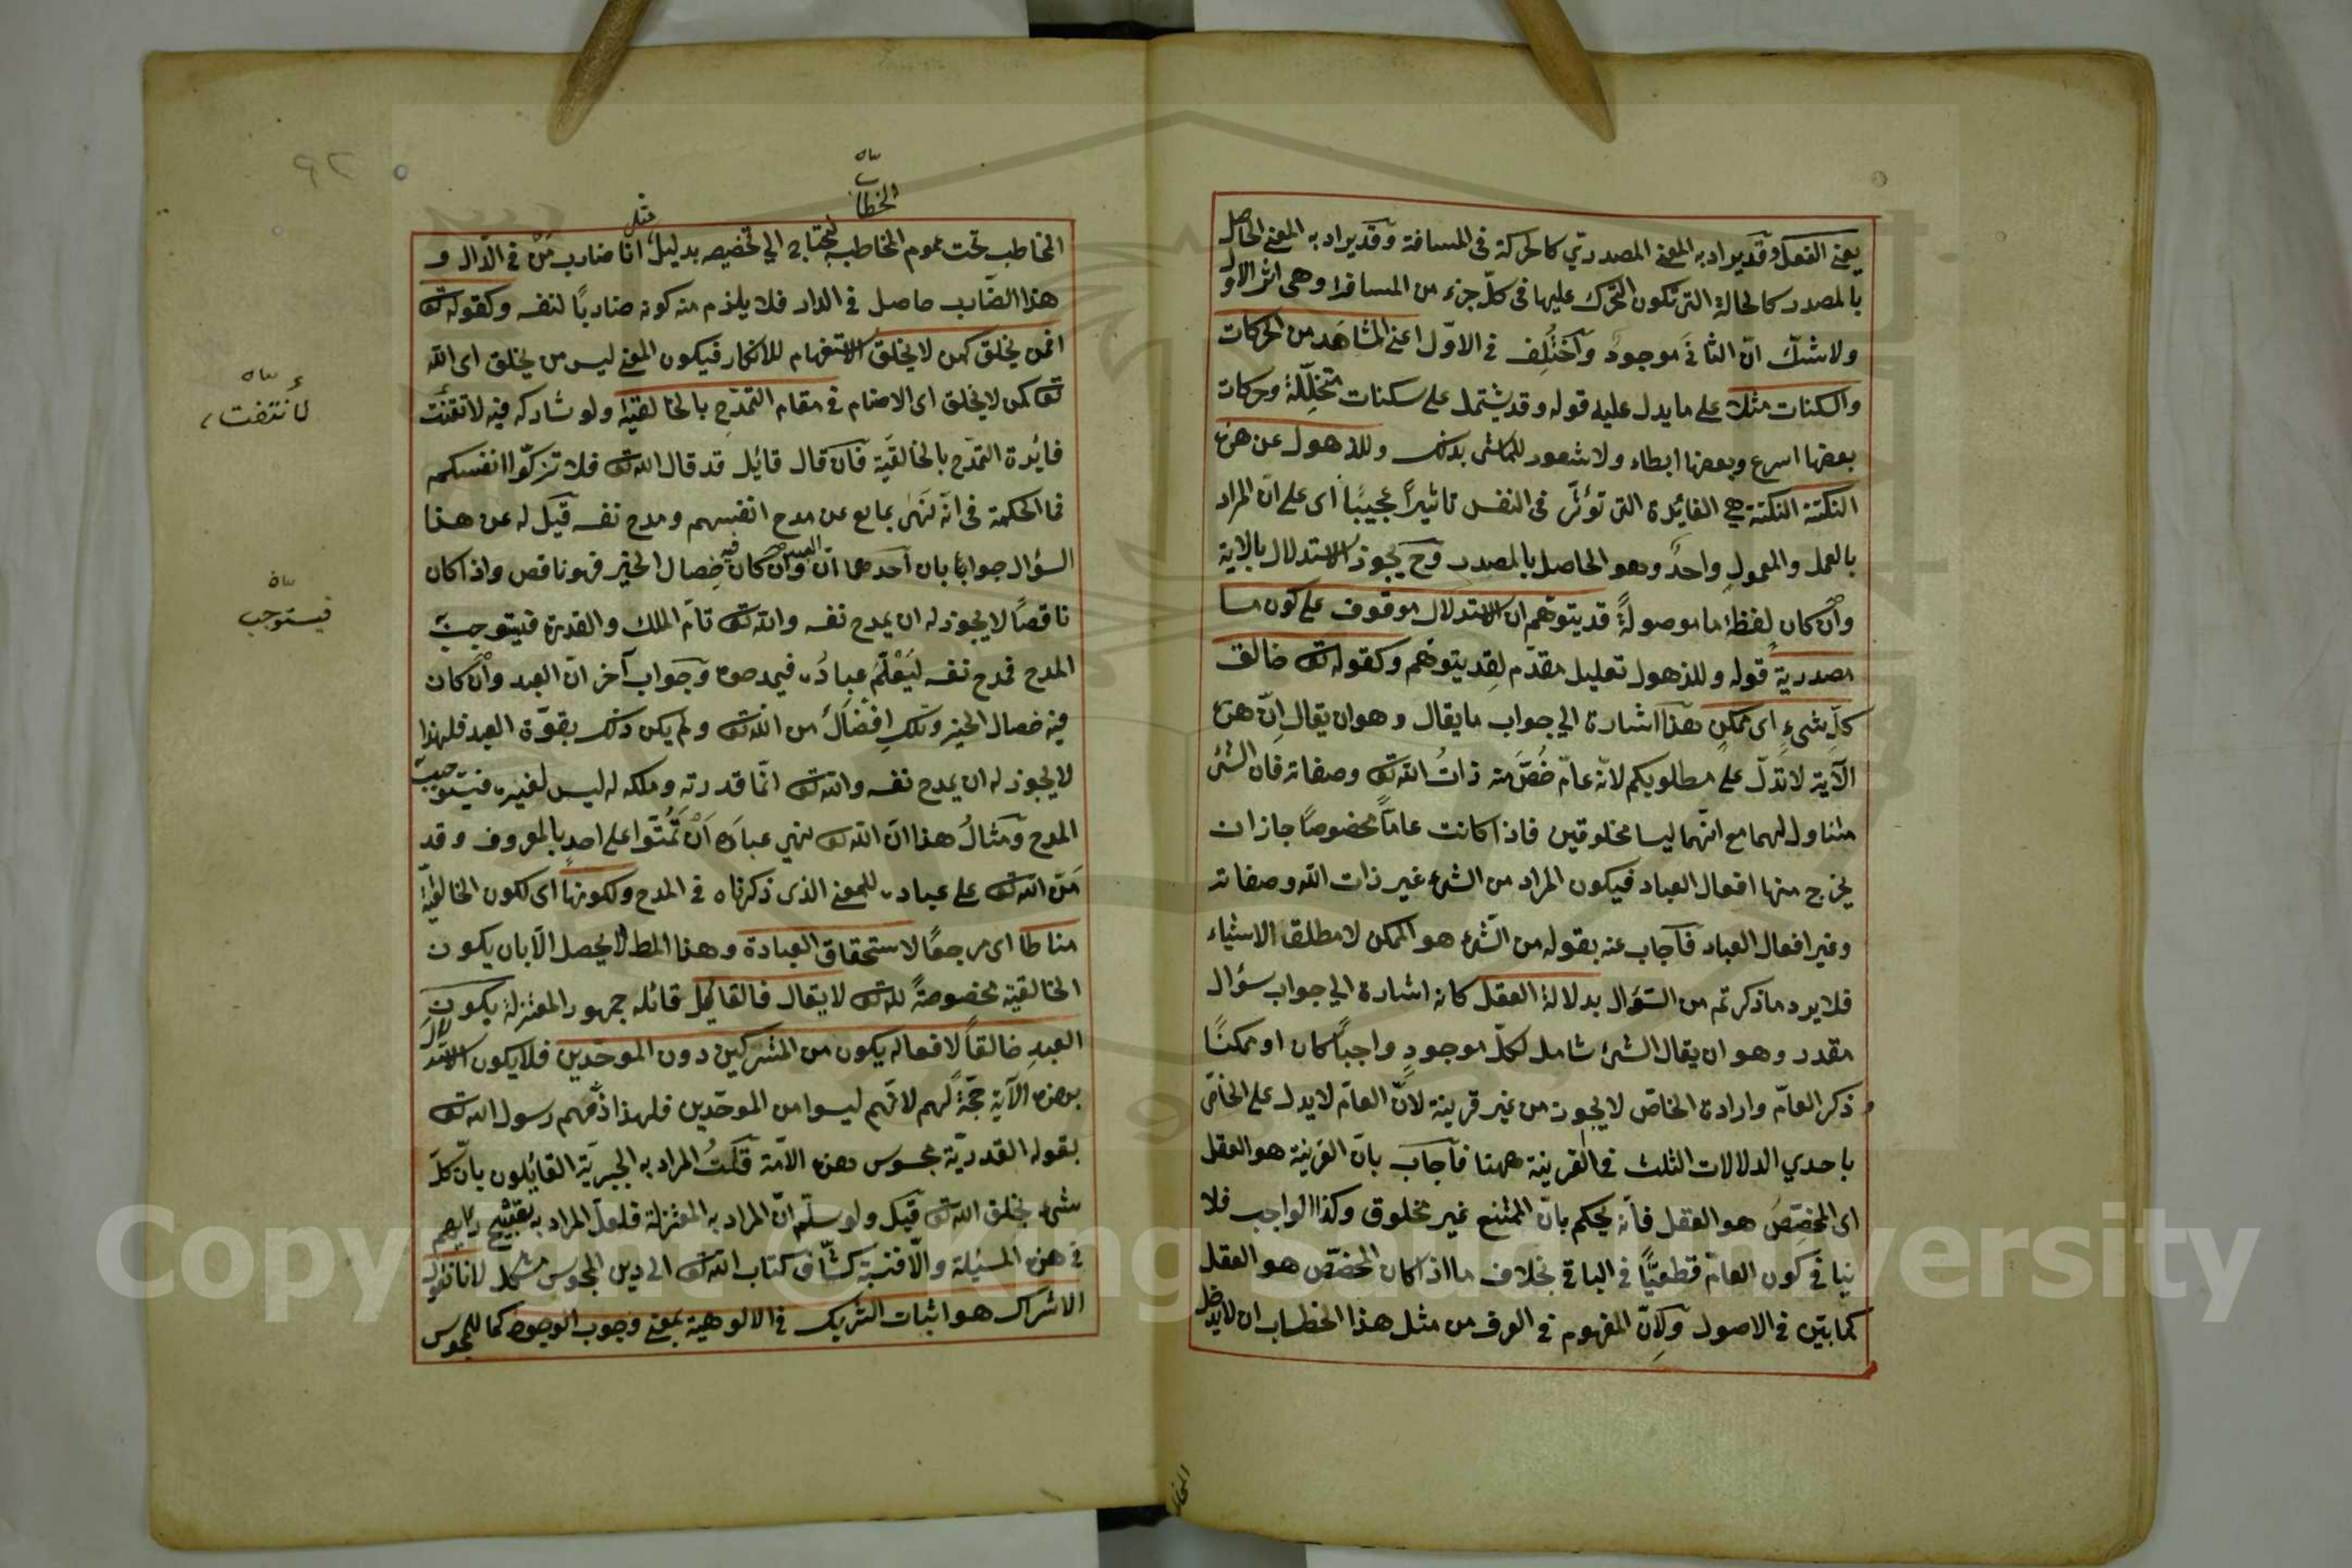 يعنى الفعل وقد يراد به المعنى المصدرى كالحركة فى المسافة وقد يراد به المعنى الحاصل
بالمصدر كالحالة التى تكون المتحرك عليها فى كلّ جزء من المسافة وهى اثر الاول
ولا شكّ انّ الثانى موجود وآختُلِف فى الاوّل اعنى المشاهَد من الحركات
والسكنات مثلا على ما يدل عليه قوله وقد يشتمل على سكنات متخلّلة وحركات
بعضها اسرع وبعضها ابطاء ولا شعور للماشى بذلك وللذهول عن هذه
النكتة النكتة هي الفائدة التى تؤثّر فى النفس تاثيراً عجيبًا اى على انّ المراد
بالعمل والمعمولِ واحدٌ وهو الحاصل بالمصدر وح يجوز الاستدلال بالاية
وان كان لفظة ما موصولةً قد يتوهّم ان الاستدلال موقوف على كون ما
مصدرية قوله وللذهول تعليل مقدّم لِقد يتوهّم وكقوله تع خالق
كلّ شىءٍ اى ممكن هذا اشارة الى جواب ما يقال وهو ان يقال اِنّ هذه
الآية لا تدلّ على مطلوبكم لانّه عامّ خُصَّ منه ذاتُ الله تع وصفاته فان الشئ
متناول لهما مع انّهما ليسا مخلوقين فاذا كانت عامّاً مخصوصاً جاز ان
يخرج منها افعال العباد فيكون المراد من الشىء غير ذات الله وصفاته
وغير افعال العباد فآجاب عنه بقوله من الشّىء هو الممكن لا مطلقا الاشياء
فلا يرد ما ذكرتم من السّؤال بدلالة العقل كانه اشارة الى جواب سؤال
مقدر وهو ان يقال الشئ شامل لكلّ موجودٍ واجباً كان او ممكنًا
ذكر العامّ وارادة الخاصّ لا يجوز من غير قرينة لانّ العامّ لا يدل على الخاصّ
باحدي الدلالات الثلث فما القرينة ههنا فآجاب بانّ القرينة هو العقل
اى المخصِّصَ هو العقل فانّه يحكم بانّ الممتنع غير مخلوق وكذا الواجب فلا
ينافى كون العامّ قطعيًّا فى الباقى بخلاف ما اذا كان المخصّص هو العقل
كما بيّن فى الاصول ولِانّ المفهوم فى العرف من مثل هذا الخطاب ان لا يدخل
الخطاب
مثل
المخاطب تحت عموم المخاطب به يحتاج الى تخصيصه بدليل انا ضارب مَنْ فى الدّار و
هذا الضّارب حاصل فى الدار فلا يلزم منه كونه ضاربًا لنفسه وكقوله تع
افمن يخلق كمن لا يخلق الاستفهام للانكار فيكون المعنى ليس من يخلق اى الله
تع كمن لا يخلق اى الاصنام فى مقام التمدّح بالخالقية ولو شاركه فيه لانتفت
لأنتفت
فائدة التمدّح بالخالقيّة فآن قال قائل قد قال الله تع فلا تزكّوا انفسكم
فما الحكمة فى انّه نَهَى عباده عن مدح انفسهم ومدح نفسه قيل له عن هذا
السؤال جوابان احدهما انّ العبد وان كان فيه خِصال الخير فهو ناقص واذا كان
ناقصاً لا يجوز له ان يمدح نفسه والله تع تامّ الملك والقدرة فيستوجب
فيستوجب
المدح فمدح نفسه ليُعْلِمَ عباده فيمدحوه وجواب آخر انّ العبد وان كان
فيه خصال الخير وتلك اِفْضالٌ من الله تع ولم يكن ذلك بقوّة العبد فلهذا
لا يجوز له ان يمدح نفسه والله تع انّما قدرته وملكه له ليس لغيره فيستوجب
المدح ومثالُ هذا انّ الله تع نهى عباده اَنْ يَمُنّوا على احد بالمعروف وقد
مَنّ الله تع على عباده للمعنى الذى ذكرناه فى المدح ولكونها اى لكون الخالقيّة
مناطا اى مرجعًا لاستحقاق العبادة وهذا المط لا يحصل الّا بان يكون
الخالقية مخصوصةً لله تع لا يقال فالقائل قائله جمهور المعتزلة بكون
العبدِ خالقاً لافعاله يكون من المشركين دون الموحّدين فلا يكون الاستدلال
بهذه الآية حجّةً لهم لانّهم ليسوا من الموحّدين فلهذا ذمّهم رسول الله تع
بقوله القدريّة مجوس هذه الامّة قلتُ المراد به الجبريّة القائلون بانّ كلّ
شىء بخلق الله تع قيل ولو سلّم انّ المراد به المعتزلة فلعلّ المراد به تقبيح رأيهم
فى هذه المسئلة والّا فنسبة كشّاف كتاب الله تع الى دين المجوس مشكل لانا نقول
الاشراك هو اثبات الشريك فى الالوهية بمعنى وجوب الوجود كما للمجوس
Copyright © King Saud University